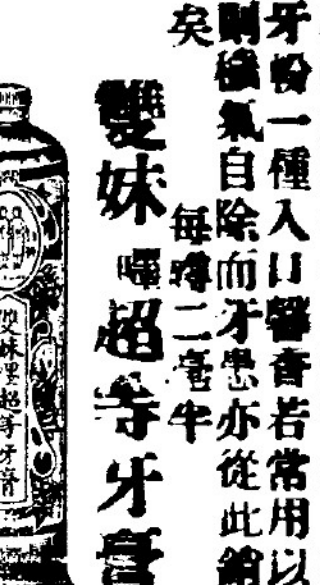 牙粉一種入口馨香若常用以
則穢氣自除而牙患亦從此銷
矣 每罇二毫半
雙妹嚜超等牙膏
雙妹嚜超等牙膏